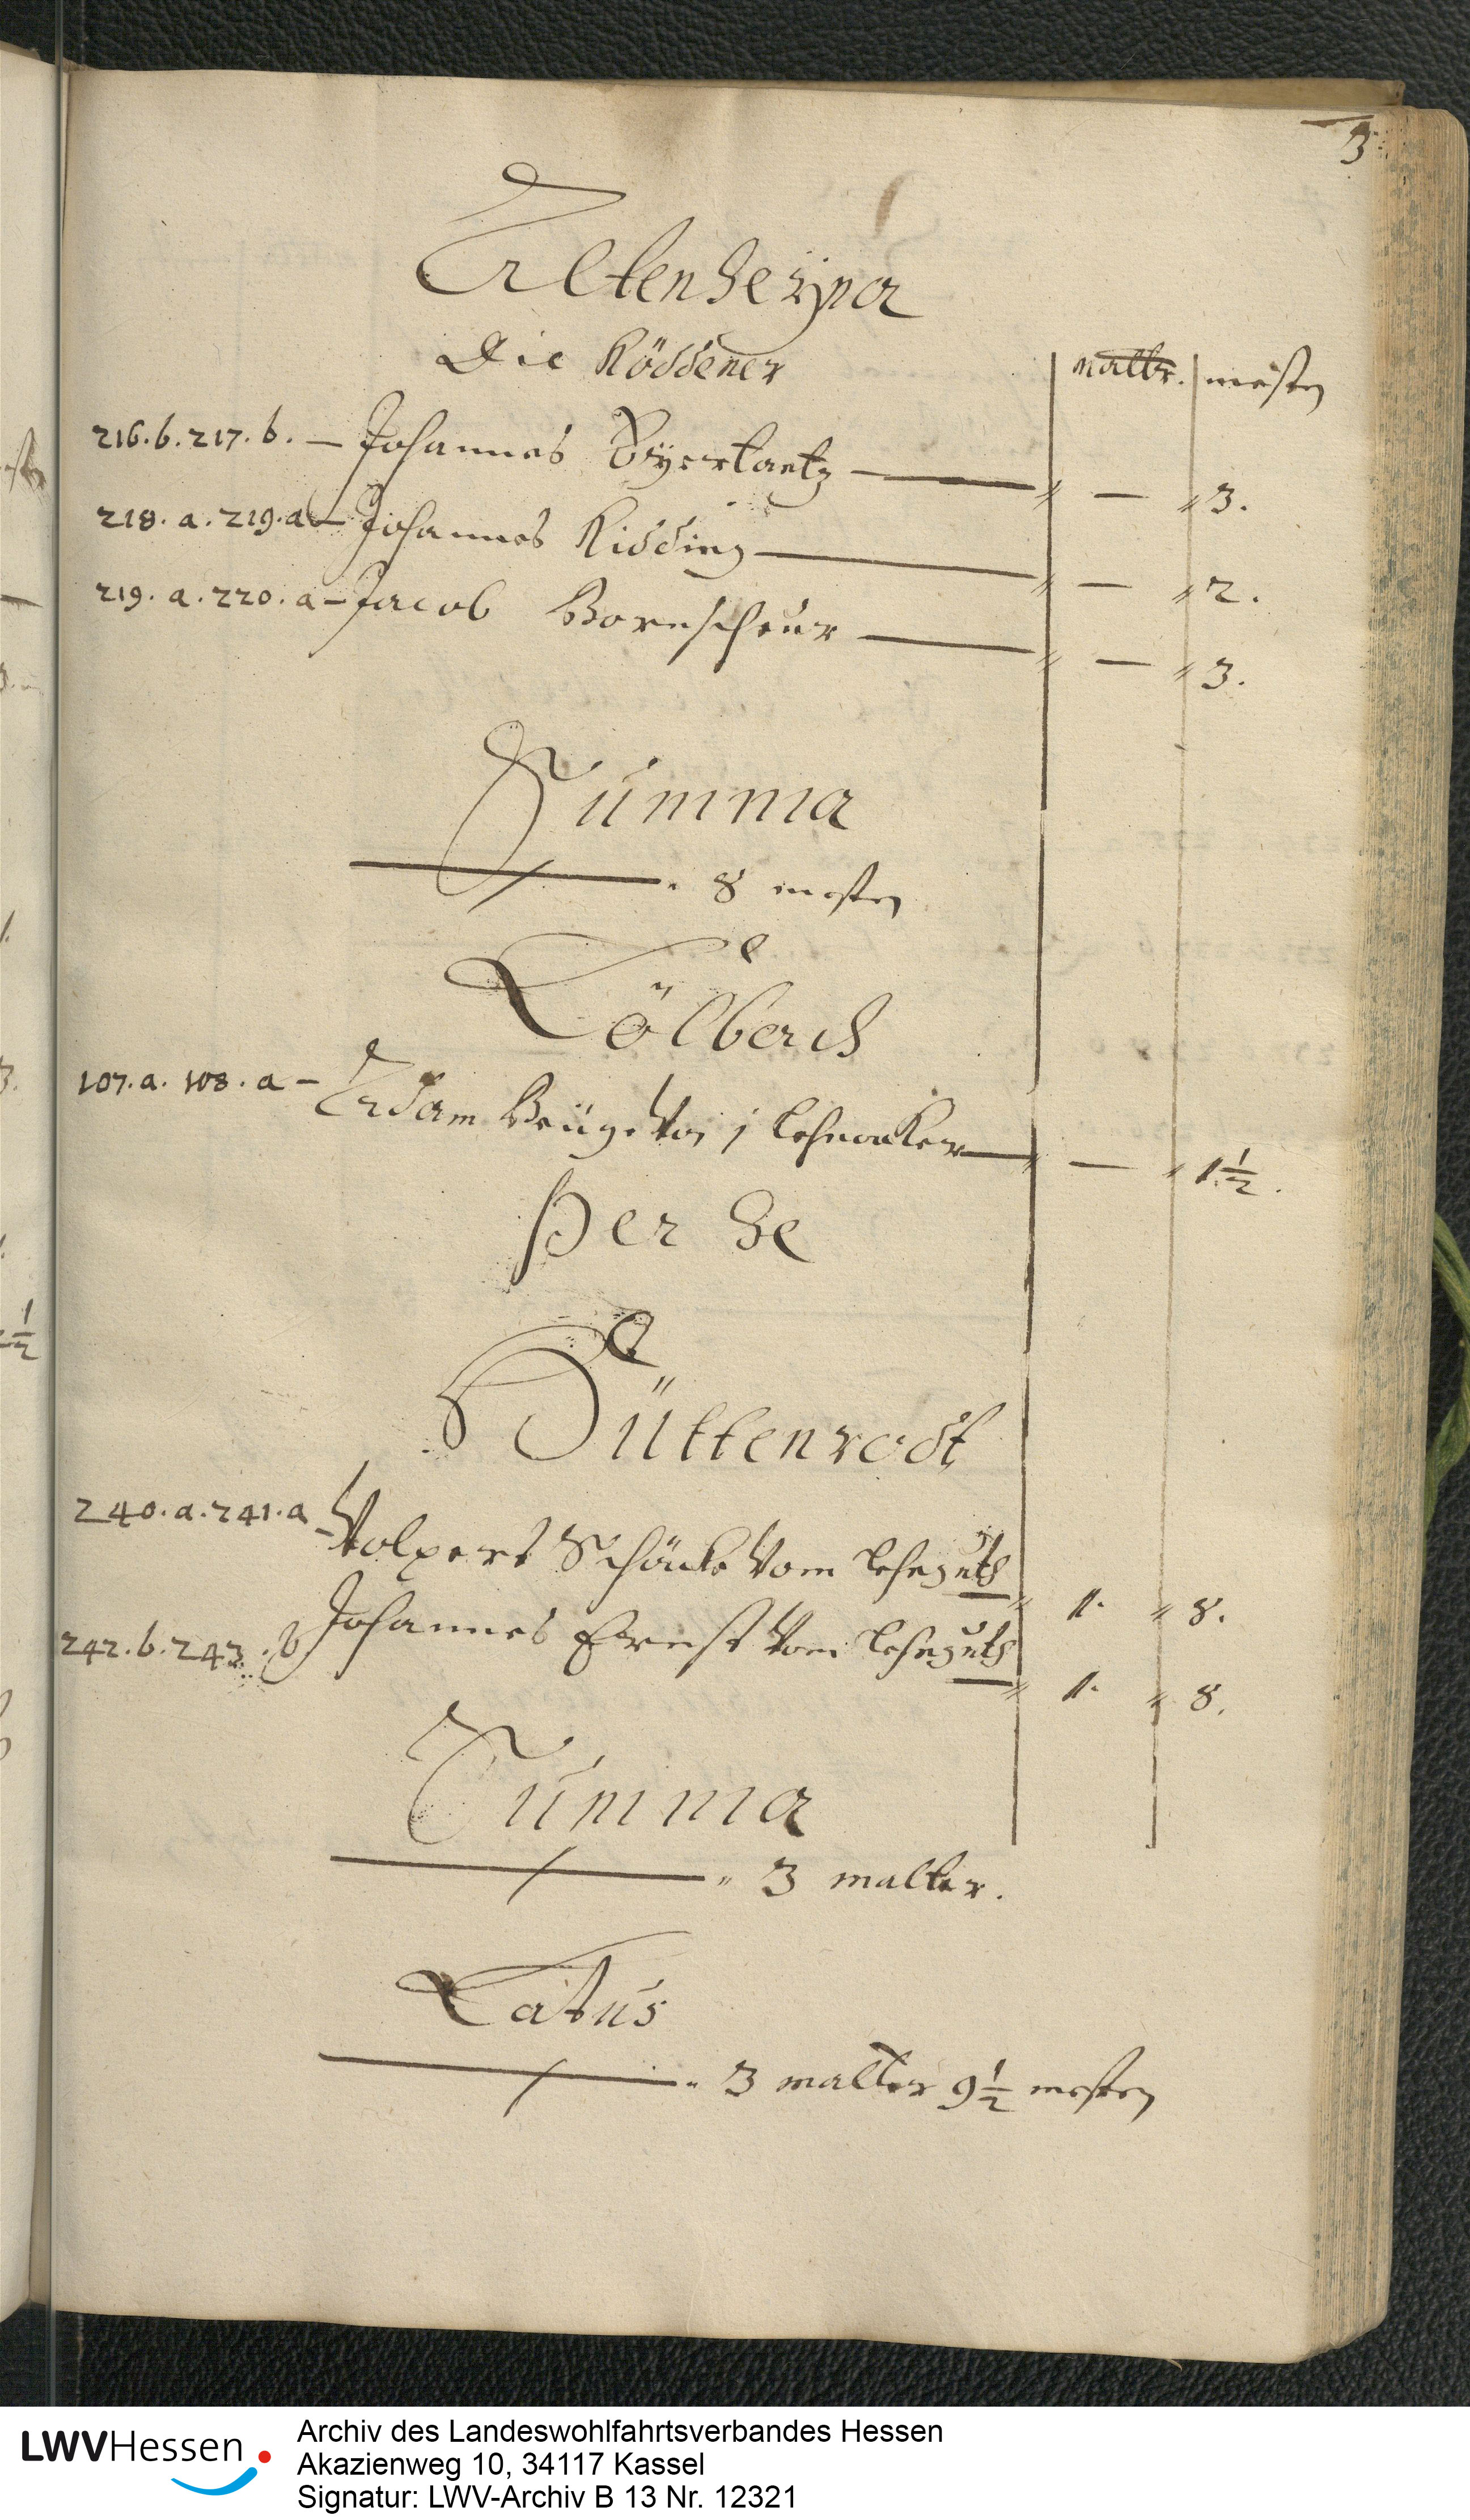 3
Altenheyna
Die Köddener
maltr. mesten
216.b.217.b. — Johannes — " — " 3.
218.a.219.a — Johannes Kidding — " — " 2.
219.a.220.a — Jacob Bornscheur — " — " 3.
Summa
8 mesten
Lölbach
107.a.108.a — Adam von 1 Lehnacker — " — " 1 1/2.
Herhe
Hüttenrodt
240.a.241.a — Volpert Schäck vom Lehnguth — " 1. " 8.
242.b.243.b Johannes Ernst vom Lehnguth — " 1. " 8.
Summa
3 malter.
Latus
3 malter 9 1/2 mesten
LWVHessen
Archiv des Landeswohlfahrtsverbandes Hessen
Akazienweg 10, 34117 Kassel
Signatur: LWV-Archiv B 13 Nr. 12321